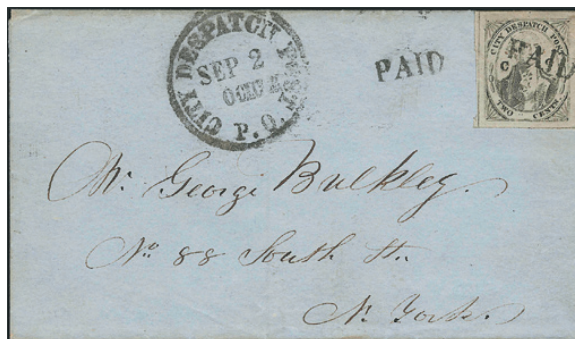 CITY DESPATCH POST
SEP 2
P.O.
PAID
CITY DESPATCH POST
PAID
TWO CENTS
Mr. George Bulkley.
No 88 South St.
N. York.